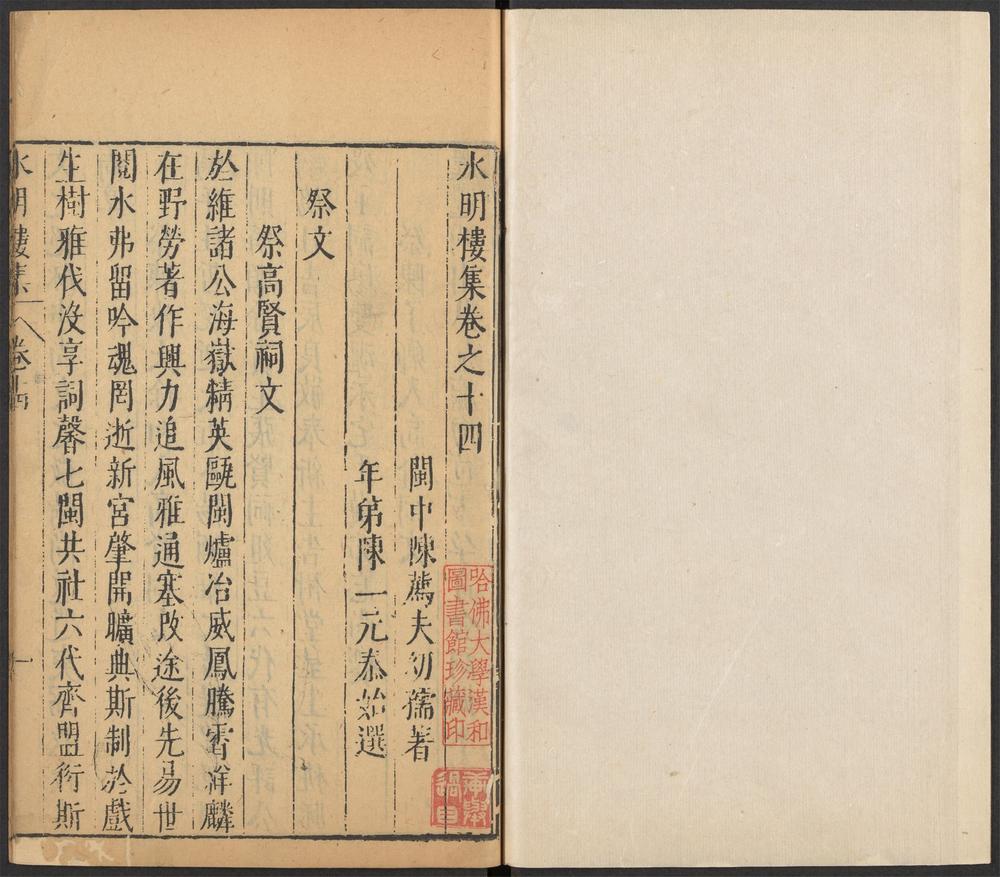 水明樓集卷之十四
閩中陳薦夫幼孺著
年弟陳一元泰始選
祭文
祭高賢祠文
於維諸公海嶽精英甌閩爐冶威鳳騰霄祥麟
在野勞著作興力追風雅通塞改途後先易世
閱水弗留吟魂罔逝新宮肇開曠典斯制於戲
生樹雅代沒享詞馨七閩共社六代齊盟衍斯
水明樓集
卷十四
一
哈佛大學漢和
圖書館珍藏印